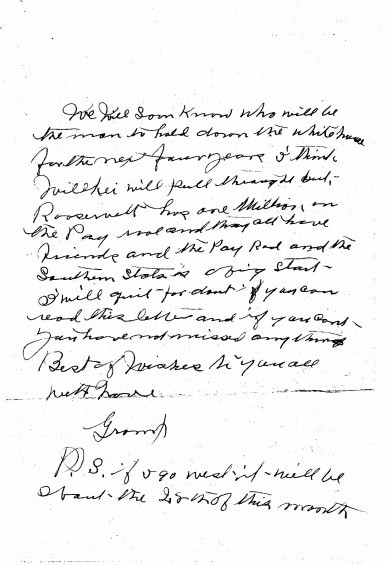 We Will Soon Know who will be
the man to hold down the white house
for the nex four years I think
Willkei will pull through but,
Roosevelt has one Million, on
the Pay roal and they all have
Friends and the Pay Roal and the
Southern States is a big Start -
I will quit for dont if you can
read this letter and if you cant -
you have not missed any thing
Best of Wishes to You all
with
Gramp
P.S. if I go west it will be
about the 28th of this month